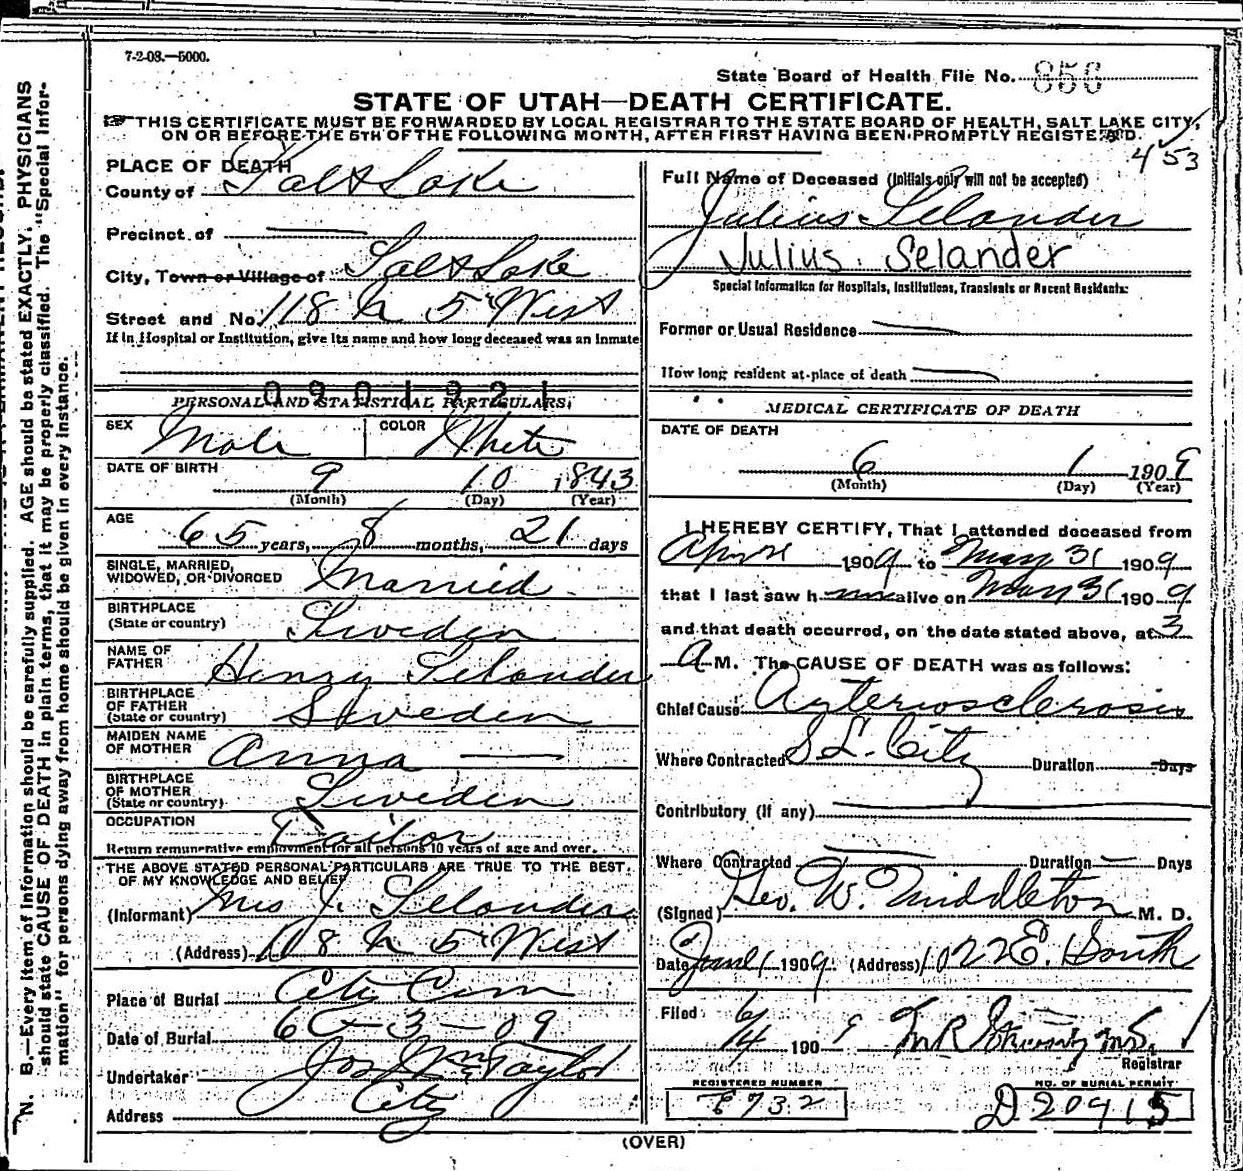 7-2-08.—5000.
State Board of Health File No. 856
STATE OF UTAH—DEATH CERTIFICATE.
THIS CERTIFICATE MUST BE FORWARDED BY LOCAL REGISTRAR TO THE STATE BOARD OF HEALTH, SALT LAKE CITY,
ON OR BEFORE THE 5TH OF THE FOLLOWING MONTH, AFTER FIRST HAVING BEEN PROMPTLY REGISTERED.
453
PLACE OF DEATH
County of Salt Lake
Precinct of —
City, Town or Village of Salt Lake
Street and No. 118 N 5" West
If in Hospital or Institution, give its name and how long deceased was an inmate
0901921
PERSONAL AND STATISTICAL PARTICULARS.
SEX Male COLOR White
DATE OF BIRTH 9 10 1843
(Month) (Day) (Year)
AGE 65 years, 8 months, 21 days
SINGLE, MARRIED,
WIDOWED, OR DIVORCED Married
BIRTHPLACE
(State or country) Sweden
NAME OF
FATHER Henry Selander
BIRTHPLACE
OF FATHER
(State or country) Sweden
MAIDEN NAME
OF MOTHER Anna —
BIRTHPLACE
OF MOTHER
(State or country) Sweden
OCCUPATION Tailor
Return remunerative employment for all persons 10 years of age and over.
THE ABOVE STATED PERSONAL PARTICULARS ARE TRUE TO THE BEST
OF MY KNOWLEDGE AND BELIEF
(Informant) Mrs J. Selander
(Address) 118 N 5" West
Place of Burial City Cem
Date of Burial 6 - 3 - 09
Undertaker Jos Wm Taylor
Address City
Full Name of Deceased (Initials only will not be accepted)
Julius Selander
Julius Selander
Special Information for Hospitals, Institutions, Transients or Recent Residents:
Former or Usual Residence —
How long resident at place of death —
MEDICAL CERTIFICATE OF DEATH
DATE OF DEATH
6 1 1909
(Month) (Day) (Year)
I HEREBY CERTIFY, That I attended deceased from
April 1909 to May 31 1909
that I last saw him alive on May 31 1909
and that death occurred, on the date stated above, at 3
A M. The CAUSE OF DEATH was as follows:
Chief Cause Arteriosclerosis
Where Contracted S L. City Duration Days
Contributory (if any) —
Where Contracted — Duration — Days
(Signed) Geo. W. Middleton M. D.
Date June 1 1909 (Address) 1022 E. South
Filed 6/4 1909 M R
Registrar
REGISTERED NUMBER NO. OF BURIAL PERMIT
732 D 20915
(OVER)
N. B.—Every item of information should be carefully supplied. AGE should be stated EXACTLY. PHYSICIANS
should state CAUSE OF DEATH in plain terms, that it may be properly classified. The "Special Infor-
mation" for persons dying away from home should be given in every instance.